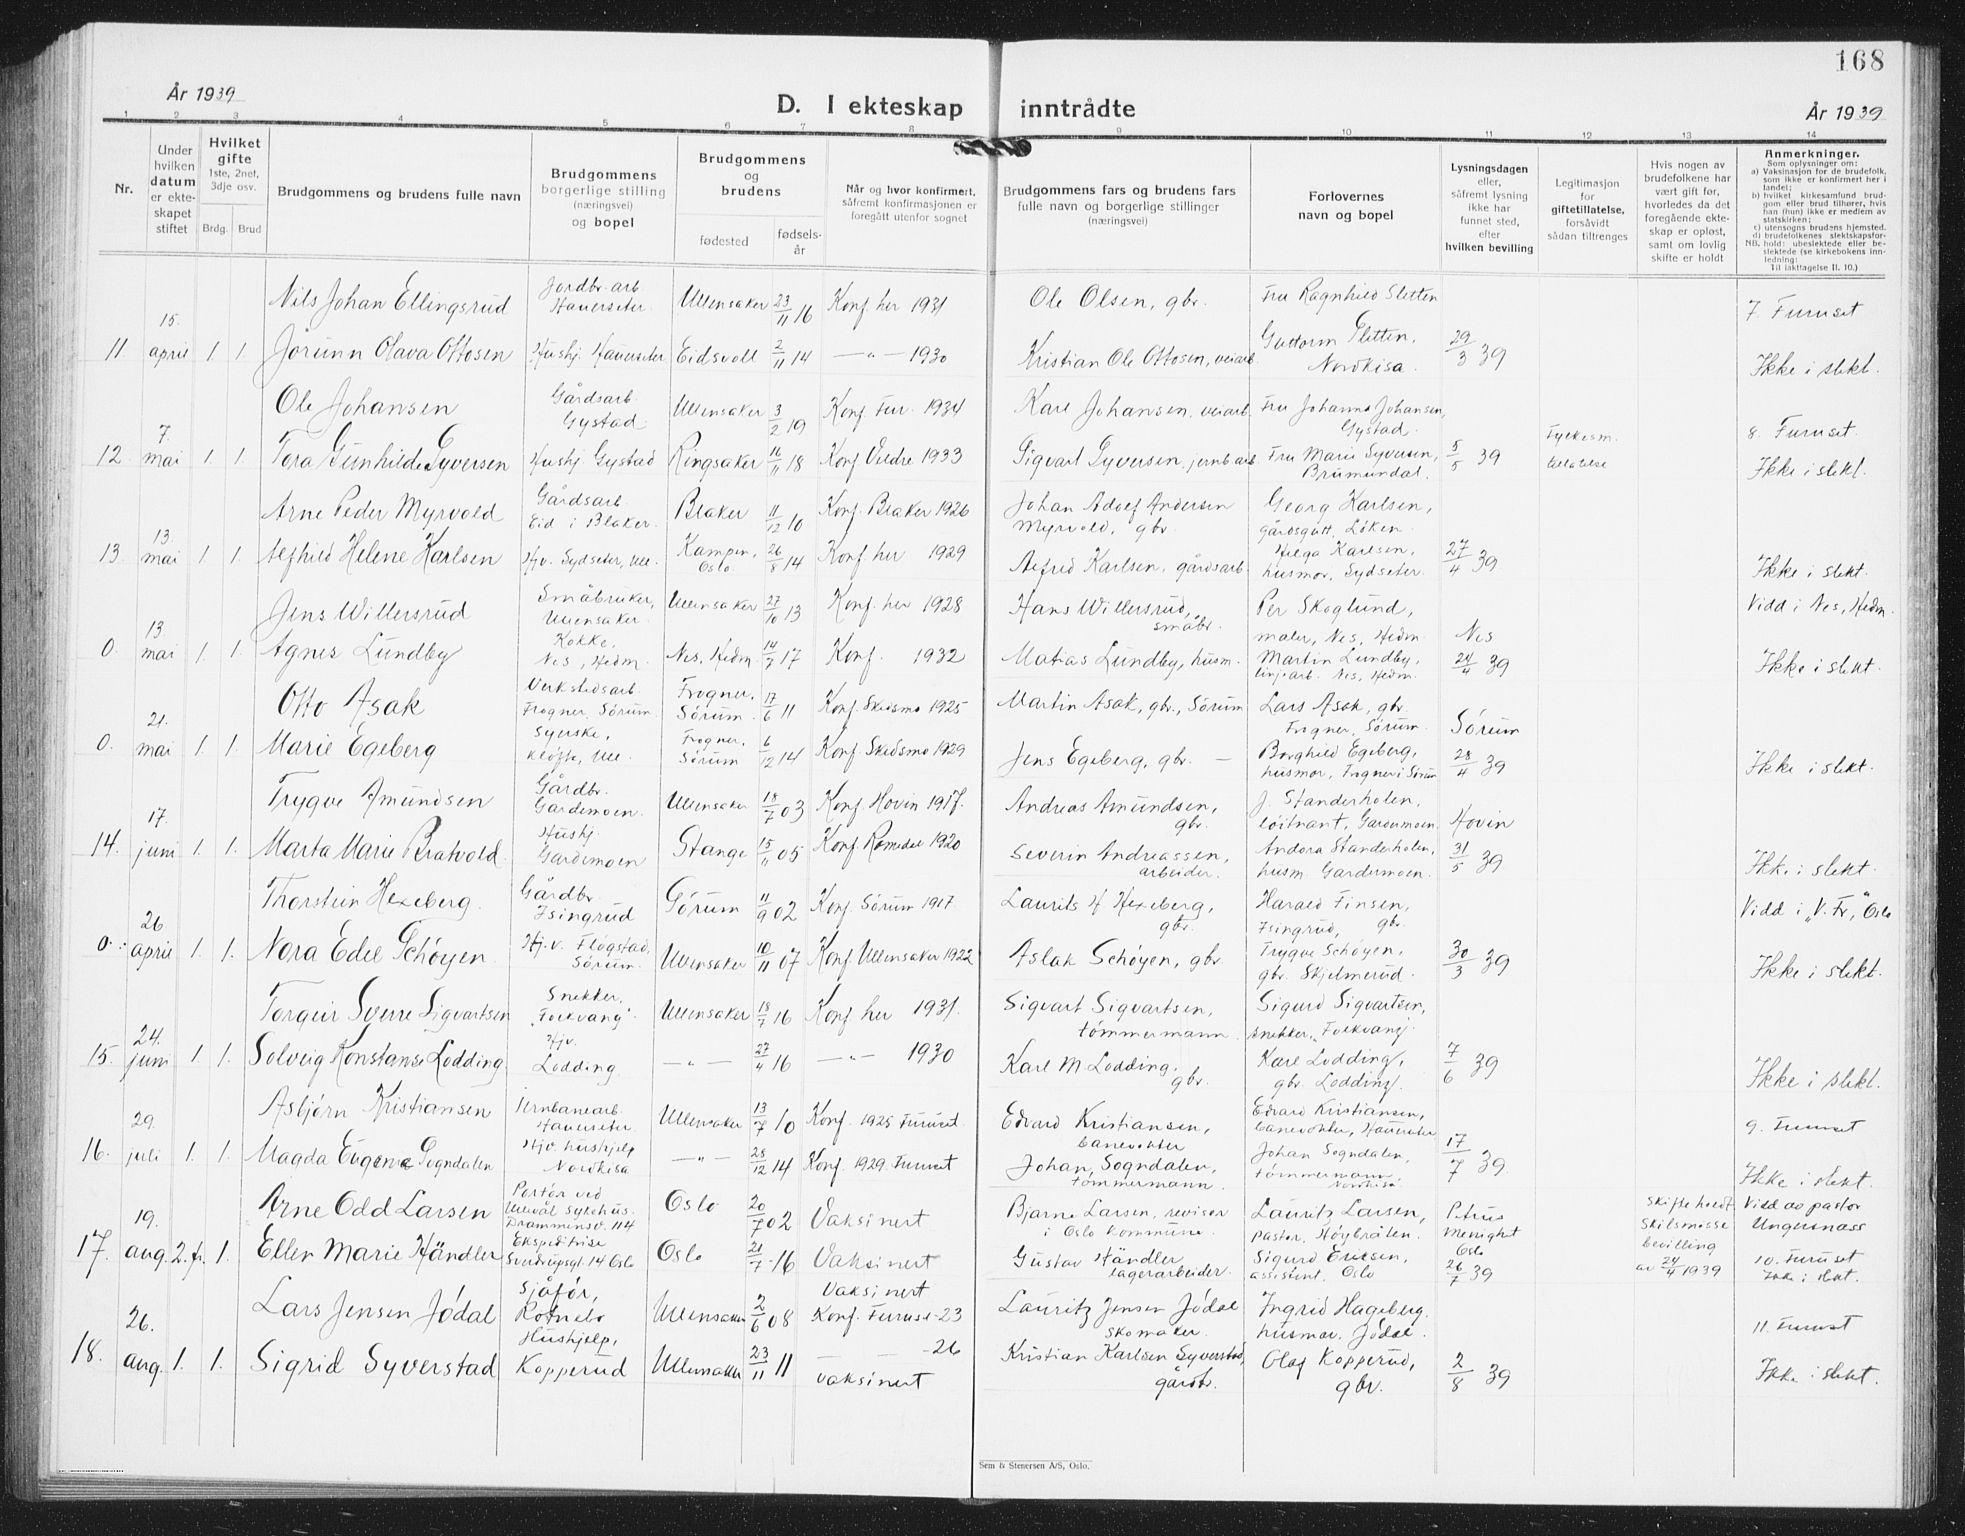 168
År 1939
D. I ekteskap inntrådte
År 1939
1 2 3 4 5 6 7 8 9 10 11 12 13 14
Nr.
Under hvilken datum er ekteskapet stiftet
Hvilket gifte 1ste, 2net, 3dje osv.
Brdg. Brud
Brudgommens og brudens fulle navn
Brudgommens borgerlige stilling (næringsvei) og bopel
Brudgommens og brudens
fødested
fødselsår
Når og hvor konfirmert, såfremt konfirmasjonen er foregått utenfor sognet
Brudgommens fars og brudens fars fulle navn og borgerlige stillinger (næringsvei)
Forlovernes navn og bopel
Lysningsdagen eller, såfremt lysning ikke har funnet sted, efter hvilken bevilling
Legitimasjon for giftetillatelse, forsåvidt sådan tiltrenges
Hvis nogen av brudefolkene har vært gift før, hvorledes da det foregående ekteskap er opløst, samt om lovlig skifte er holdt
Anmerkninger.
Som oplysninger om:
a) Vaksinasjon for de brudefolk, som ikke er konfirmert her i landet;
b) hvilket kirkesamfund brudgom eller brud tilhører, hvis han (hun) ikke er medlem av statskirken;
c) utensogns brudens hjemsted.
d) brudefolkenes slektskapsforhold: ubeslektede eller beslektede (se kirkebokens innledning:
NB.
Til iakttagelse II. 10.)
Nils Johan Ellingsrud Jordbr. arb. Hauerseter Ullensaker 23/11 16 Konf her 1931 Ole Olsen, gbr. Fru Ragnhild Sletten 7. Furuset
11 15. april 1. 1. Jorunn Olava Ottosen Hushj. Hauerseter Eidsvoll 2/11 14 —"— 1930 Kristian Ole Ottosen, veiarb. Guttorm Sletten, Nordkisa. 29/3 39 Ikke i slekt.
Ole Johansen Gårdsarb. Gystad Ullensaker 3/2 19 Konf Fur. 1934 Karl Johansen, veiarb. Fru Johanna Johansen, Gystad. 8. Furuset.
12 7. mai 1. 1. Tora Gunhilde Syversen Hushj. Gystad Ringsaker 16/11 18 Konf Veldre 1933 Sigvart Syversen, jernb.arb. Fru Marie Syversen, Brumundal. 5/5 39 Fylkesm. tillatelse Ikke i slekt.
Arne Peder Myrvold Gårdsarb. Eid i Blaker. Blaker 11/12 10 Konf. Blaker 1926 Johan Adolf Andersen Myrvold, gbr. Georg Karlsen, gårdsgutt, Løken.
13 13. mai 1. 1. Alfhild Helene Karlsen Hjv. Sydseter, Ull. Kampen, Oslo 26/8 14 Konf her 1929 Alfred Karlsen, gårdsarb. Helga Karlsen, husmor, Sydseter. 27/4 39 Ikke i slekt.
Jens Willersrud Småbruker, Ullensaker. Ullensaker 27/10 13 Konf. her 1928 Hans Willersrud, småbr. Per Skoglund, maler, Nes, Hedm. Vidd i Nes, Hedm.
0. 13. mai 1. 1. Agnes Lundby Kokke, Nes, Hedm. Nes, Hedm. 14/7 17 Konf. 1932 Matias Lundby, husm. Martin Lundby, linjearb. Nes, Hedm. Nes 24/4 39 Ikke i slekt.
Otto Asak Verkstedsarb. Frogner, Sørum Frogner, Sørum 17/6 11 Konf. Skedsmo 1925 Martin Asak, gbr., Sørum Lars Asak, gbr. Frogner, Sørum.
0. 21. mai 1. 1. Marie Egeberg Syerske, Kløfta, Ull. Frogner, Sørum 6/12 14 Konf. Skedsmo 1929 Jens Egeberg, gbr. — Borghild Egeberg, husmor, Frogner i Sørum Sørum 28/4 39 Ikke i slekt.
Trygve Amundsen Gårdbr. Gardemoen. Ullensaker 18/7 03 Konf. Hovin 1917. Andreas Amundsen, gbr. J. Standerholen, løitnant, Gardermoen.
14. 17. juni 1. 1. Marta Marie Bratvold. Hushj. Gardemoen Stange 15/11 05 Konf Romedal 1920 Severin Andreassen, arbeider. Andora Standerholen, husm. Gardermoen. Hovin 31/5 39 Ikke i slekt.
Thorstein Hexeberg. Gårdbr. Isingrud Sørum 11/9 02 Konf. Sørum 1917. Laurits H Hexeberg, gbr. Harald Finsen, Isingrud, gbr. Vidd i "V. Fr," Oslo
0. 26. april 1. 1. Nora Edel Schøyen Hj.v. Flogstad, Sørum. Ullensaker 10/11 07 Konf Ullensaker 1922 Aslak Schøyen, gbr. Trygve Schøyen, gbr. Skjelmerud. 30/3 39 Ikke i slekt.
Torgeir Sverre Sigvartsen Snekker, "Folkvang". Ullensaker 18/7 16 Konf her 1931. Sigvart Sigvartsen, tømmermann. Sigurd Sigvartsen, snekker, "Folkvang".
15. 24. juni 1. 1. Solveig Konstanse Lodding Hjv. Lodding. —"— 27/4 16 —"— 1930 Karl M Lodding, gbr. Karl Lodding, gbr. Lodding. 7/6 39 Ikke i slekt.
Asbjørn Kristiansen Jernbanearb. Hauerseter Ullensaker 13/7 10 Konf. 1925 Furuset Edvard Kristiansen, banevokter Edvard Kristiansen, banevokter, Hauerseter 9. Furuset
16. 29. juli 1. 1. Magda Eugenie Sogndalen Hjv. hushjelp Nordkisa —"— 28/12 14 Konf. 1929. Furuset Johan Sogndalen, tømmermann. Johan Sogndalen, tømmermann Nordkisa 17/7 39. Ikke i slekt.
Arne Odd Larsen Portør ved Ullevål sykehus. Drammensv. 114 Oslo 20/7 02 Vaksinert Bjarne Larsen, revisor i Oslo kommune. Lauritz Larsen, pastor, Høybråten. Vidd av pastor Ungersnæss
17. 19. aug. 2. fr. 1. Ellen Marie Händler Ekspeditrise Sverdrupsgt. 14 Oslo Oslo 21/7 16 Vaksinert Gustav Händler, lagerarbeider. Sigurd Ericsen, assistent, Oslo Petrus Menighet Oslo 26/7 39 Skifte holdt Skilsmisse bevilling av 24/4 1939 10. Furuset Ikke i slekt.
Lars Jensen Jødal Sjåfør, Rotnebo Ullensaker 2/6 08 Vaksinert Konf. Furuse -23 Lauritz Jensen Jødal skomaker. Ingrid Hageberg, husmor, Jødal. 11. Furuset
18. 26. aug. 1. 1. Sigrid Syverstad Hushjelp, Kopperud Ullensaker 23/11 11 — — -26 vaksinert Kristian Karlsen Syverstad, gårdbr. Olaf Kopperud, gbr. 2/8 39 Ikke i slekt.
Sem & Stenersen A/S, Oslo.